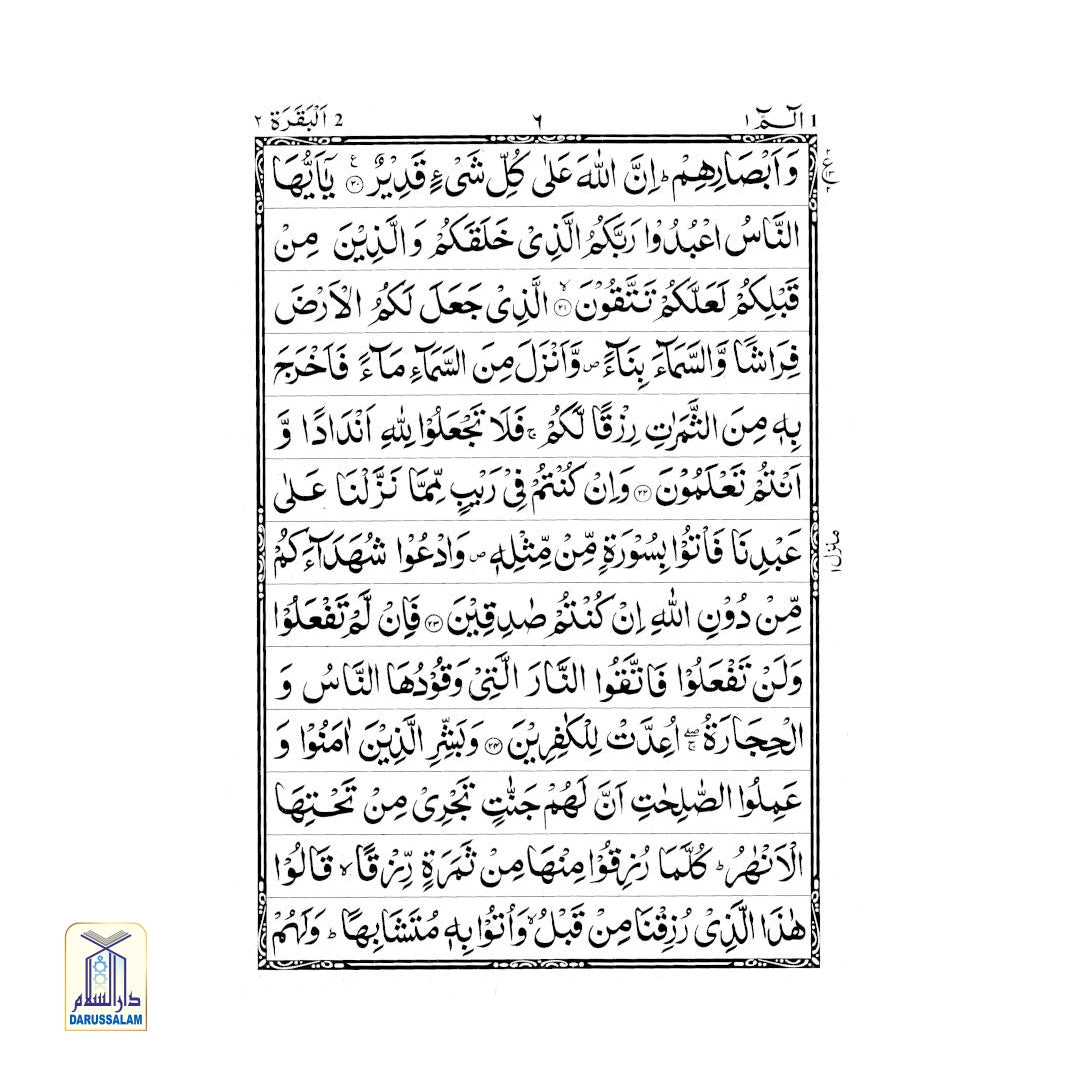 1 الٓمّٓ ١ ٦ 2 اَلْبَقَرَة ٢
وَاَبْصَارِهِمْ ؕ اِنَّ اللّٰهَ عَلٰى كُلِّ شَىْءٍ قَدِيْرٌ ۧ ٢٠ يٰٓاَيُّهَا
النَّاسُ اعْبُدُوْا رَبَّكُمُ الَّذِىْ خَلَقَكُمْ وَالَّذِيْنَ مِنْ
قَبْلِكُمْ لَعَلَّكُمْ تَتَّقُوْنَ ۙ ٢١ الَّذِىْ جَعَلَ لَكُمُ الْاَرْضَ
فِرَاشًا وَّالسَّمَآءَ بِنَآءً ص وَّاَنْزَلَ مِنَ السَّمَآءِ مَآءً فَاَخْرَجَ
بِهٖ مِنَ الثَّمَرٰتِ رِزْقًا لَّكُمْ ۚ فَلَا تَجْعَلُوْا لِلّٰهِ اَنْدَادًا وَّ
اَنْتُمْ تَعْلَمُوْنَ ٢٢ وَاِنْ كُنْتُمْ فِىْ رَيْبٍ مِّمَّا نَزَّلْنَا عَلٰى
عَبْدِنَا فَاْتُوْا بِسُوْرَةٍ مِّنْ مِّثْلِهٖ ص وَادْعُوْا شُهَدَآءَكُمْ
مِّنْ دُوْنِ اللّٰهِ اِنْ كُنْتُمْ صٰدِقِيْنَ ٢٣ فَاِنْ لَّمْ تَفْعَلُوْا
وَلَنْ تَفْعَلُوْا فَاتَّقُوا النَّارَ الَّتِىْ وَقُوْدُهَا النَّاسُ وَ
الْحِجَارَةُ ۖۚ اُعِدَّتْ لِلْكٰفِرِيْنَ ٢٤ وَبَشِّرِ الَّذِيْنَ اٰمَنُوْا وَ
عَمِلُوا الصّٰلِحٰتِ اَنَّ لَهُمْ جَنّٰتٍ تَجْرِىْ مِنْ تَحْتِهَا
الْاَنْهٰرُ ؕ كُلَّمَا رُزِقُوْا مِنْهَا مِنْ ثَمَرَةٍ رِّزْقًا ۙ قَالُوْا
هٰذَا الَّذِىْ رُزِقْنَا مِنْ قَبْلُ ۙ وَاُتُوْا بِهٖ مُتَشَابِهًا ؕ وَلَهُمْ
منزل ١
دار السلام
DARUSSALAM